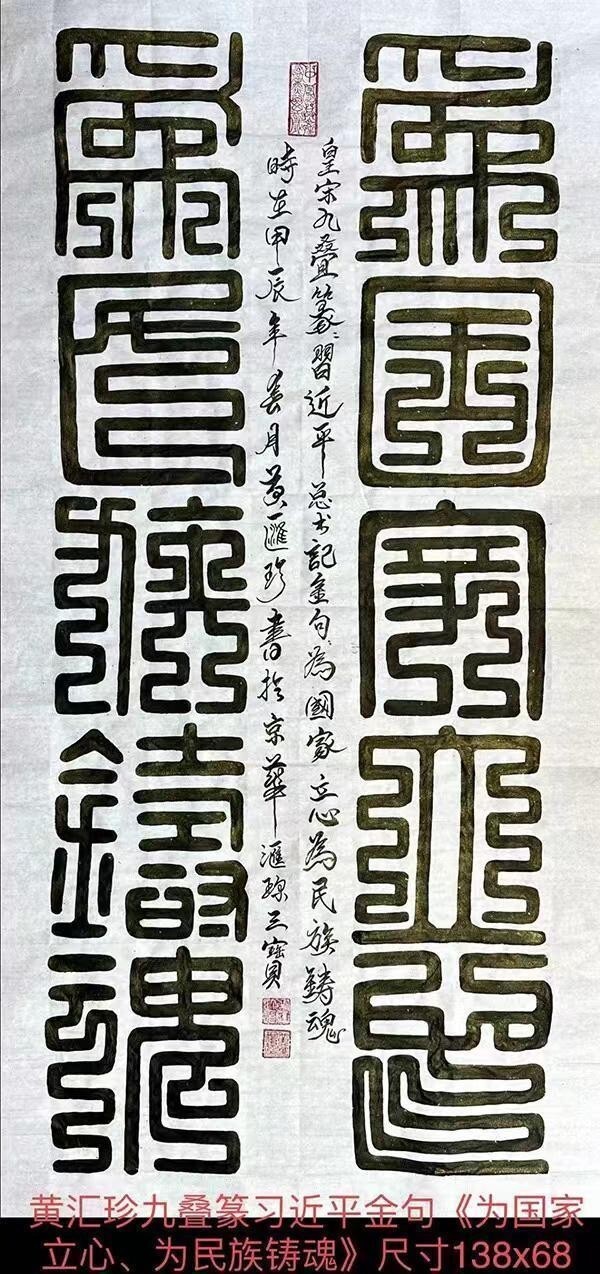 為國家立心
皇宋九疊篆：習近平总书記金句：為國家立心為民族鑄魂
時在甲辰年春月黃滙珍書於京華滙琭三寶
為民族鑄魂
黄汇珍九叠篆习近平金句《为国家
立心、为民族铸魂》尺寸138x68